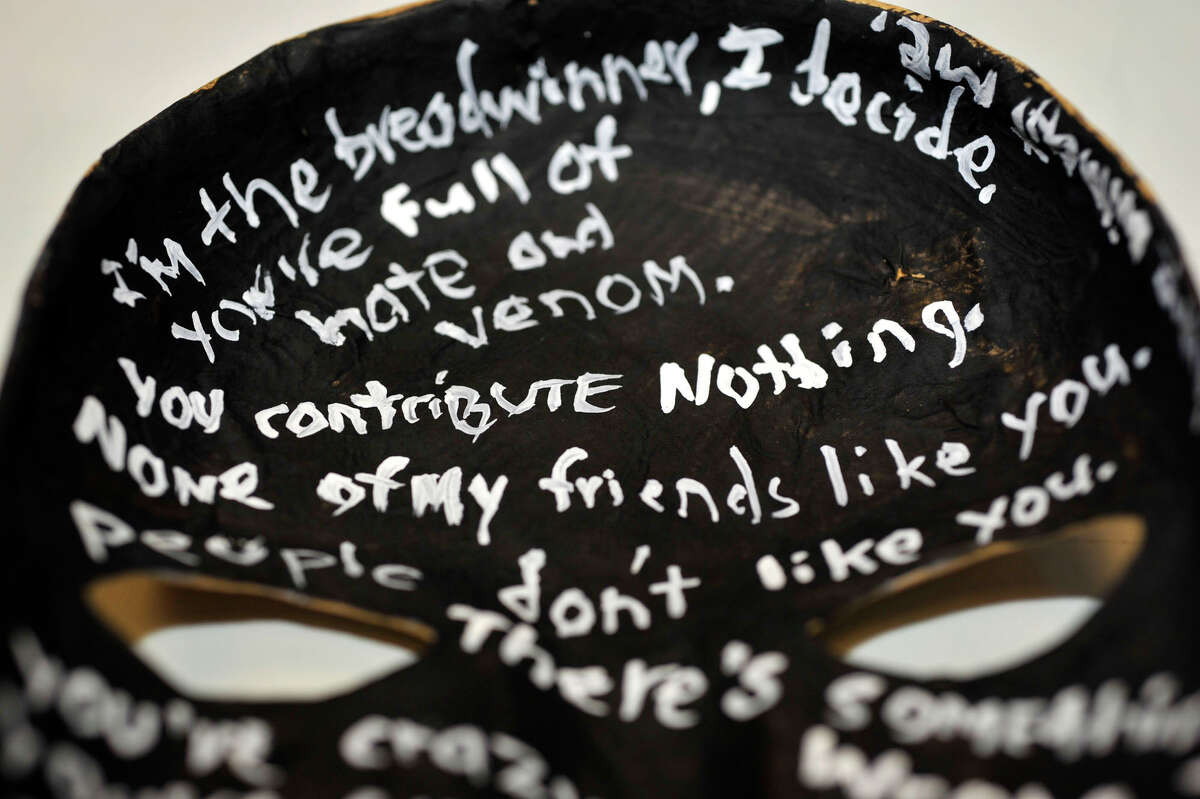 I'm the breadwinner, I decide.
you're full of
hate and
venom.
You contriBUTE Nothing.
None of my friends like you.
people don't like you.
There's something
You've crazy